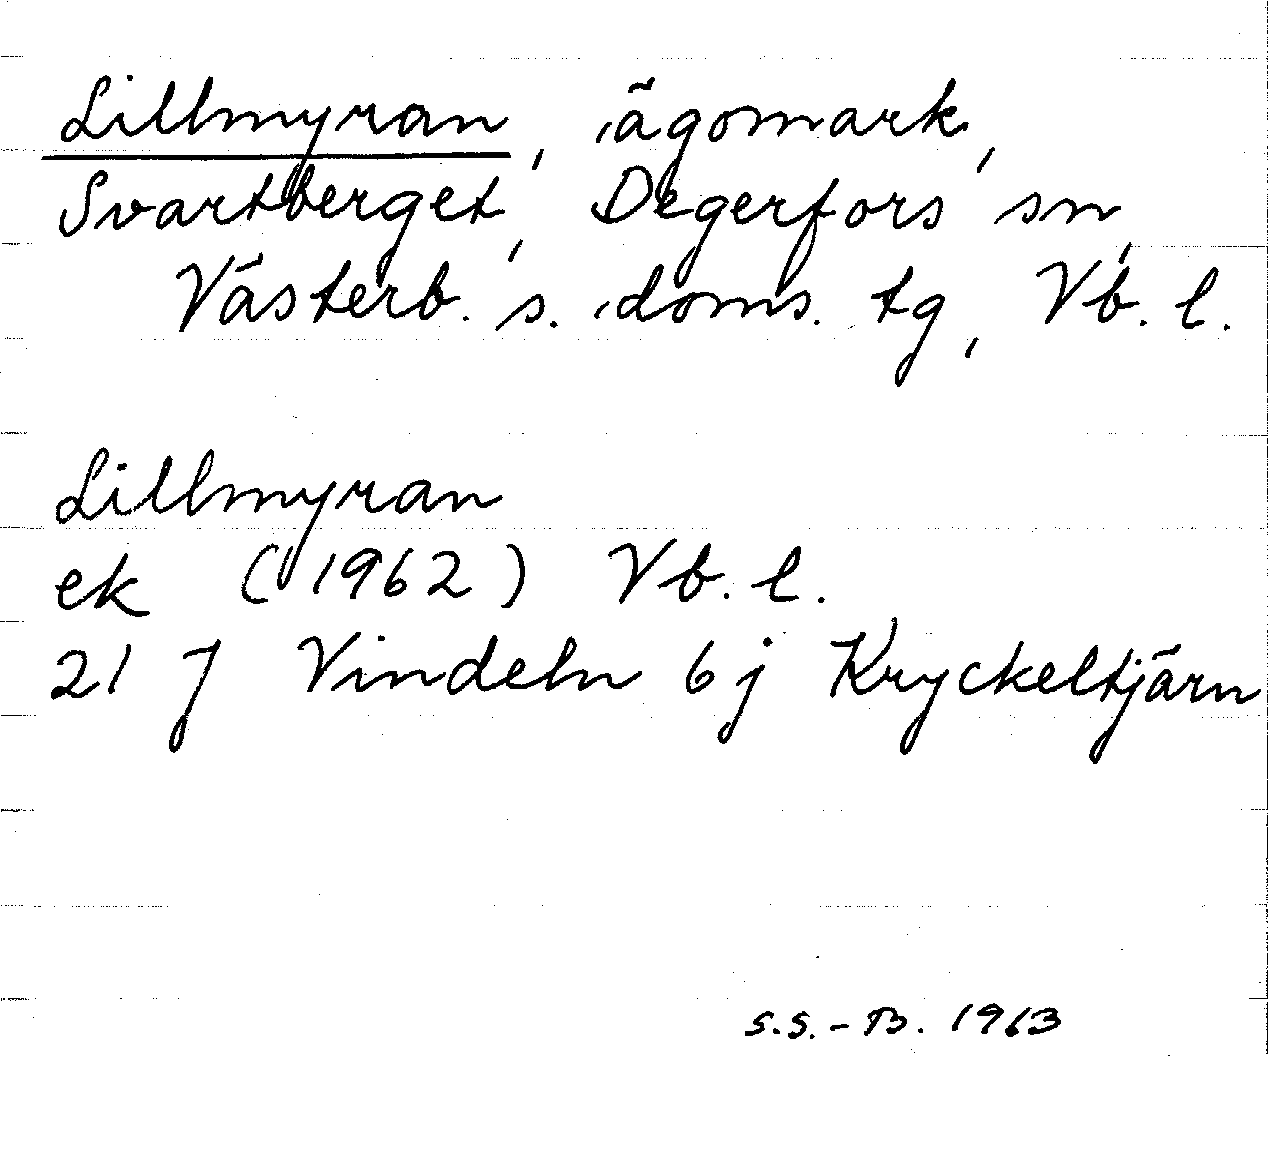 Lillmyran, ägomark,
Svartberget, Degerfors sn,
Västerb. s. doms. tg, Vb. l.
Lillmyran
ek (1962) Vb. l.
21 J Vindeln 6 j Kryckeltjärn
S.S.-B. 1963